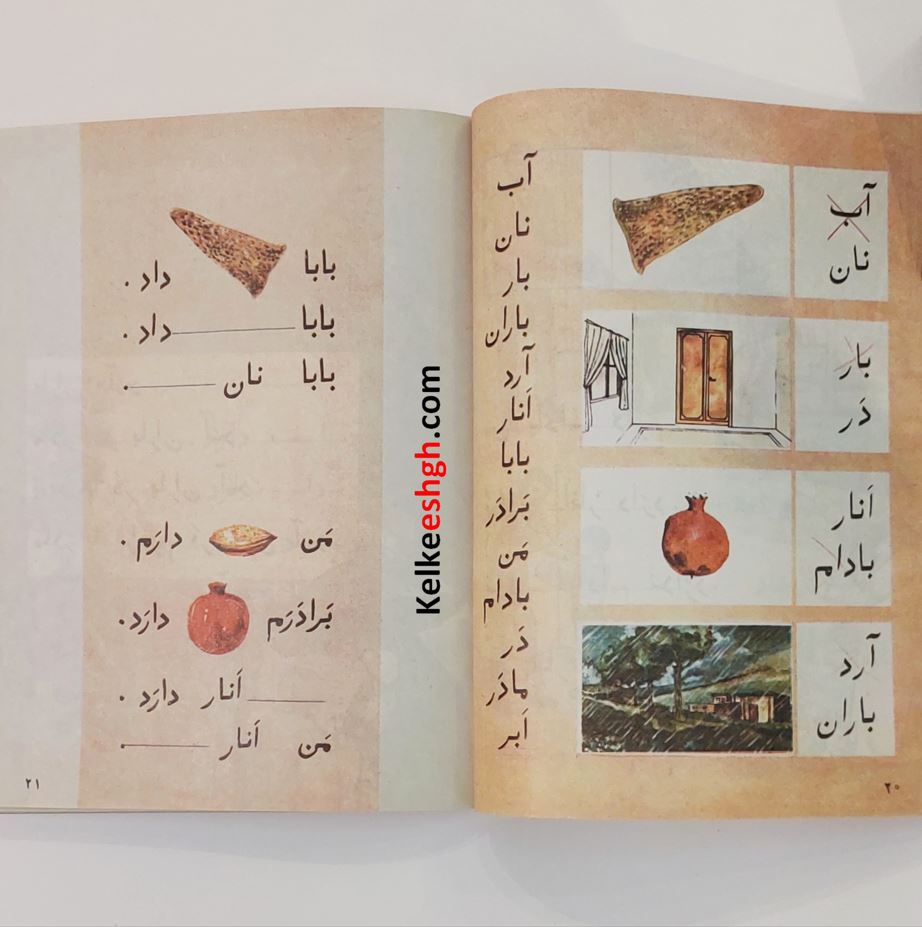 آب
نان
بار
دَر
اَنار
بادام
آرد
باران
آب
نان
بار
باران
آرد
اَنار
بابا
بَرادَر
مَن
بادام
دَر
مادَر
اَبر
۲۰
بابا داد .
بابا ــــــ داد .
بابا نان ــــــ .
مَن دارَم .
بَرادَرَم دارَد .
ــــــ اَنار دارَد .
مَن اَنار ــــــ .
۲۱
Kelkeeshgh.com